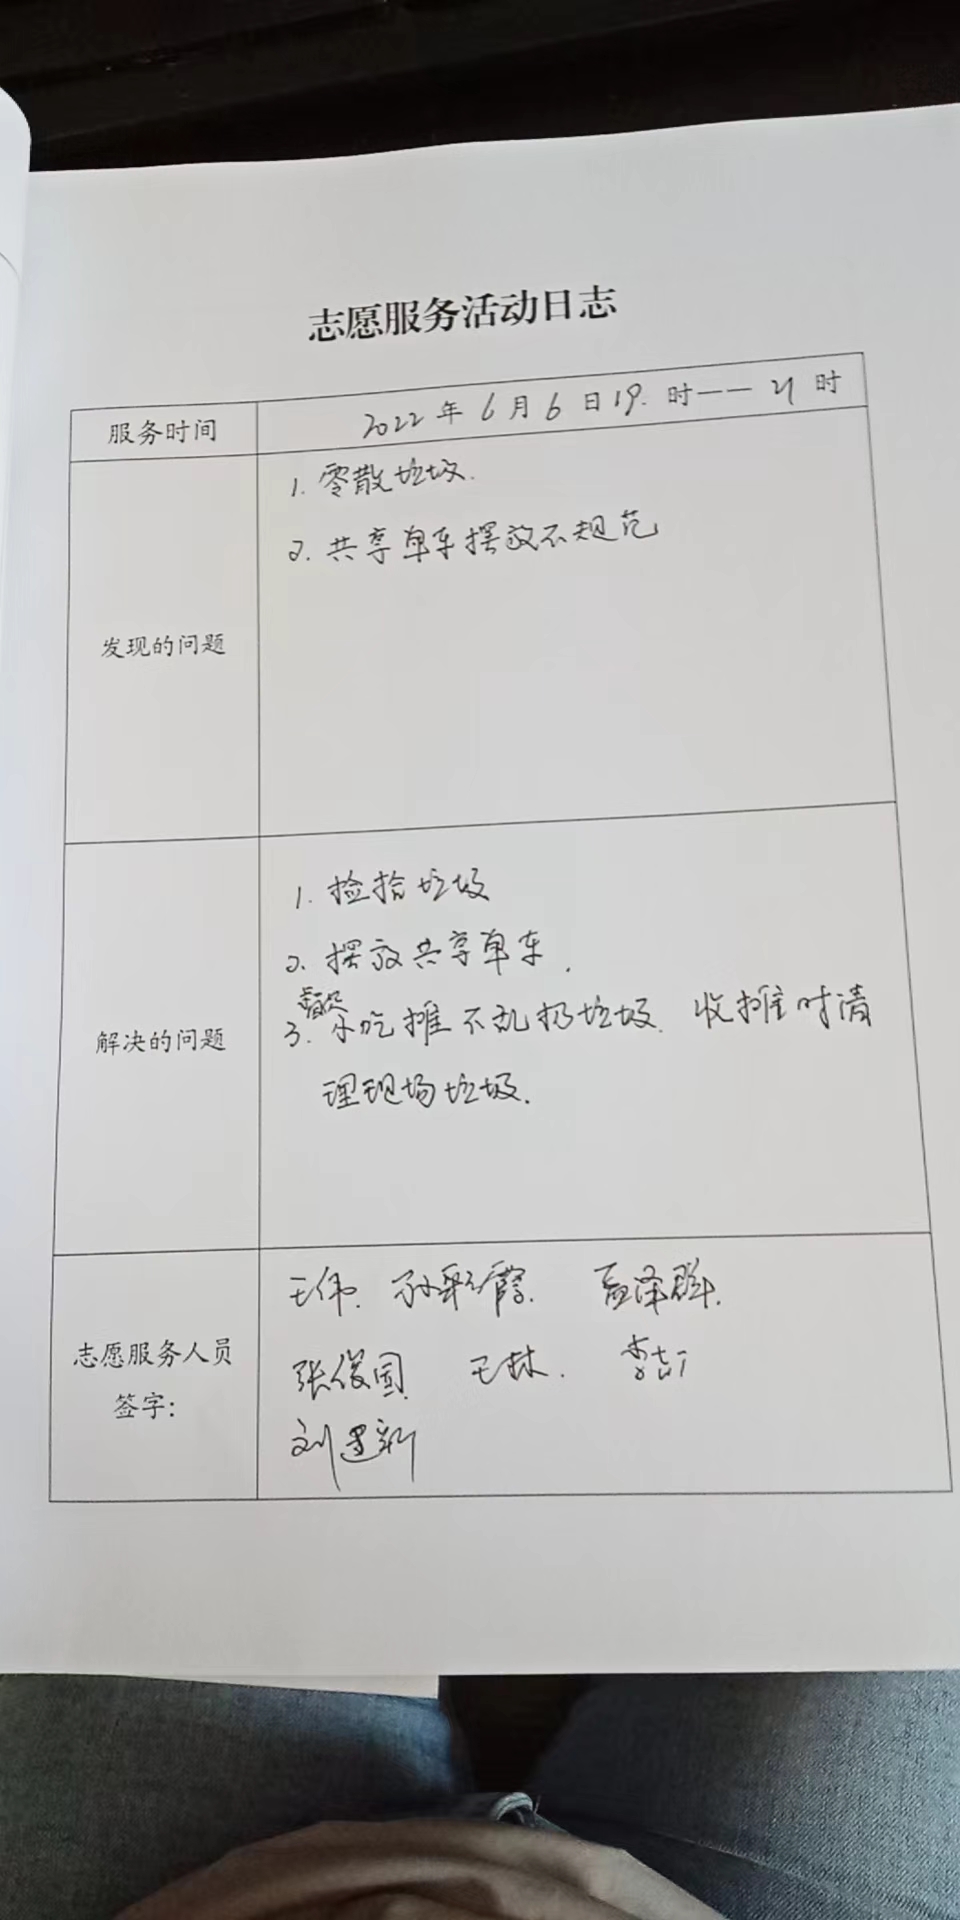 志愿服务活动日志
服务时间
2022年6月6日19时——21时
发现的问题
1. 零散垃圾.
2. 共享单车摆放不规范
解决的问题
1. 捡拾垃圾
2. 摆放共享单车.
3. 小吃摊不乱扔垃圾. 收摊时清
理现场垃圾.
志愿服务人员
签字:
王伟. 孙彩霞. 孟泽群.
张俊国 王林.
刘建新